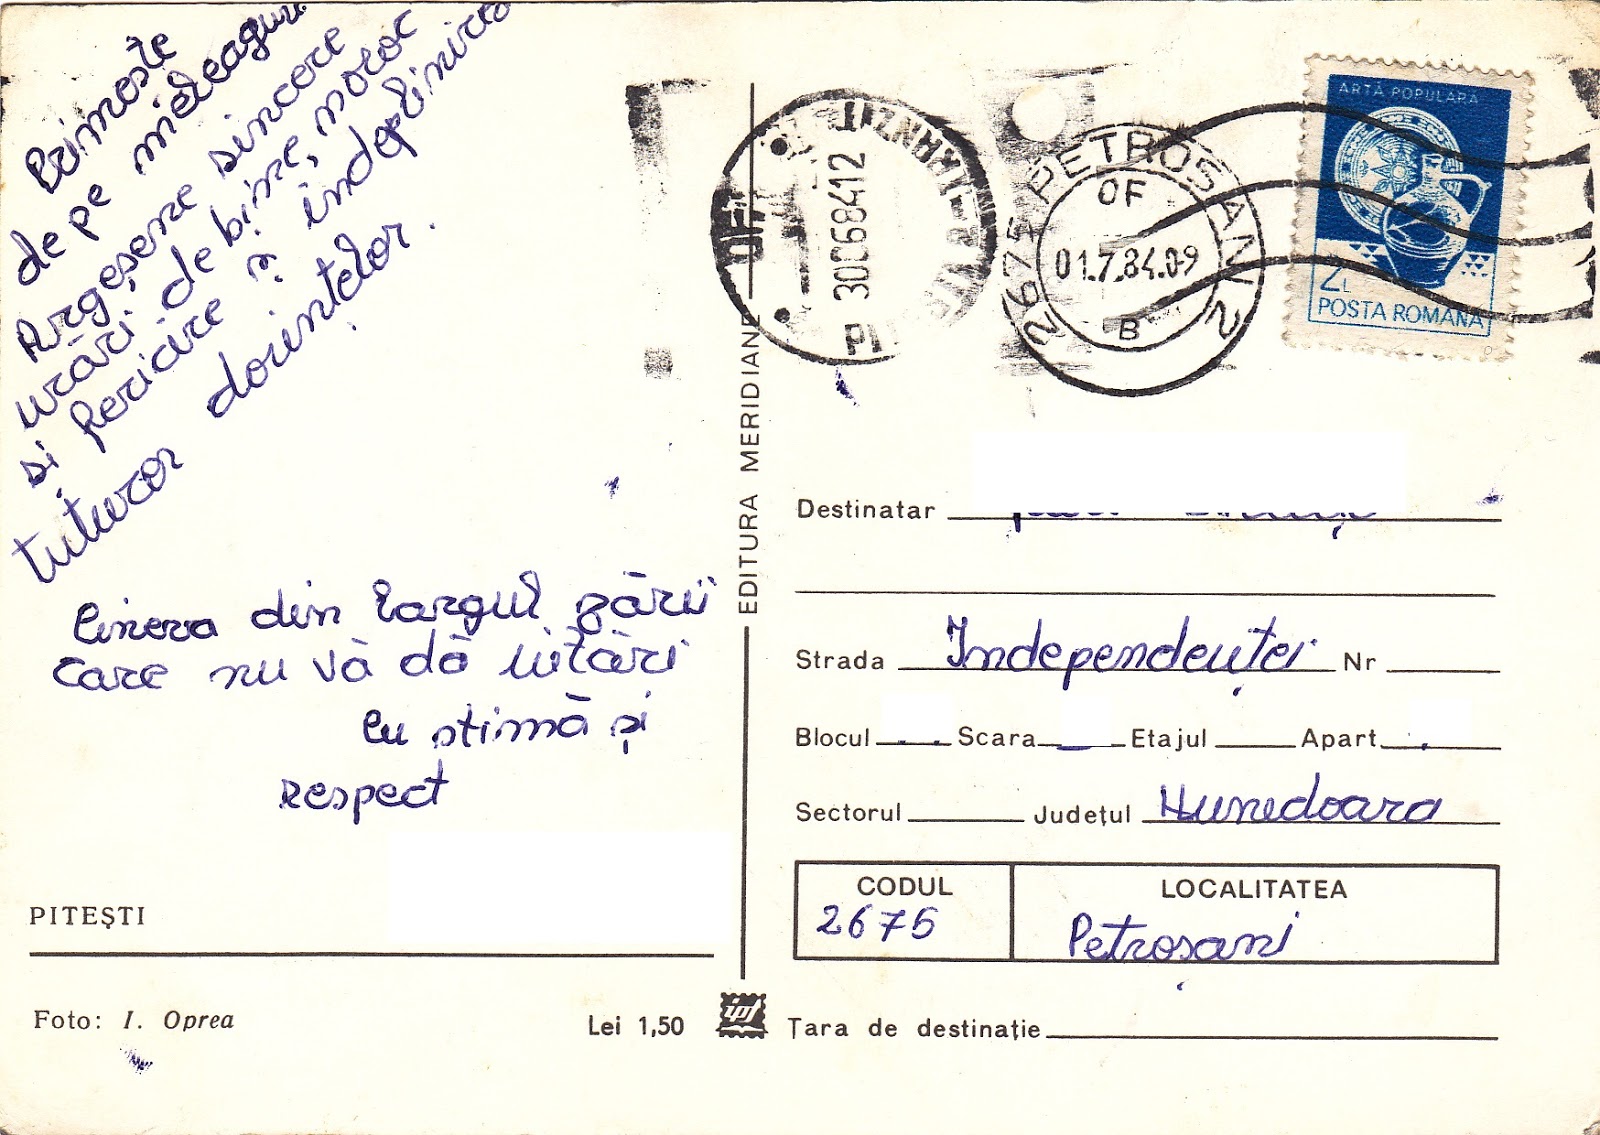 Primește
de pe meleaguri
Argeșene sincere
urări de bine, noroc
și fericire și îndeplinirea
tuturor dorințelor.
Cineva din largul zării
care nu vă dă uitări
Cu stimă și
respect
PITEȘTI
Foto: I. Oprea
Lei 1,50
EDITURA MERIDIANE
30C68412
2675 PETROSANI 2
OF
01.7.84.0-9
B
ARTĂ POPULARĂ
2L
POSTA ROMANA
Destinatar
Strada Independenței Nr
Blocul Scara Etajul Apart.
Sectorul Județul Hunedoara
CODUL LOCALITATEA
2675 Petroșani
Țara de destinație